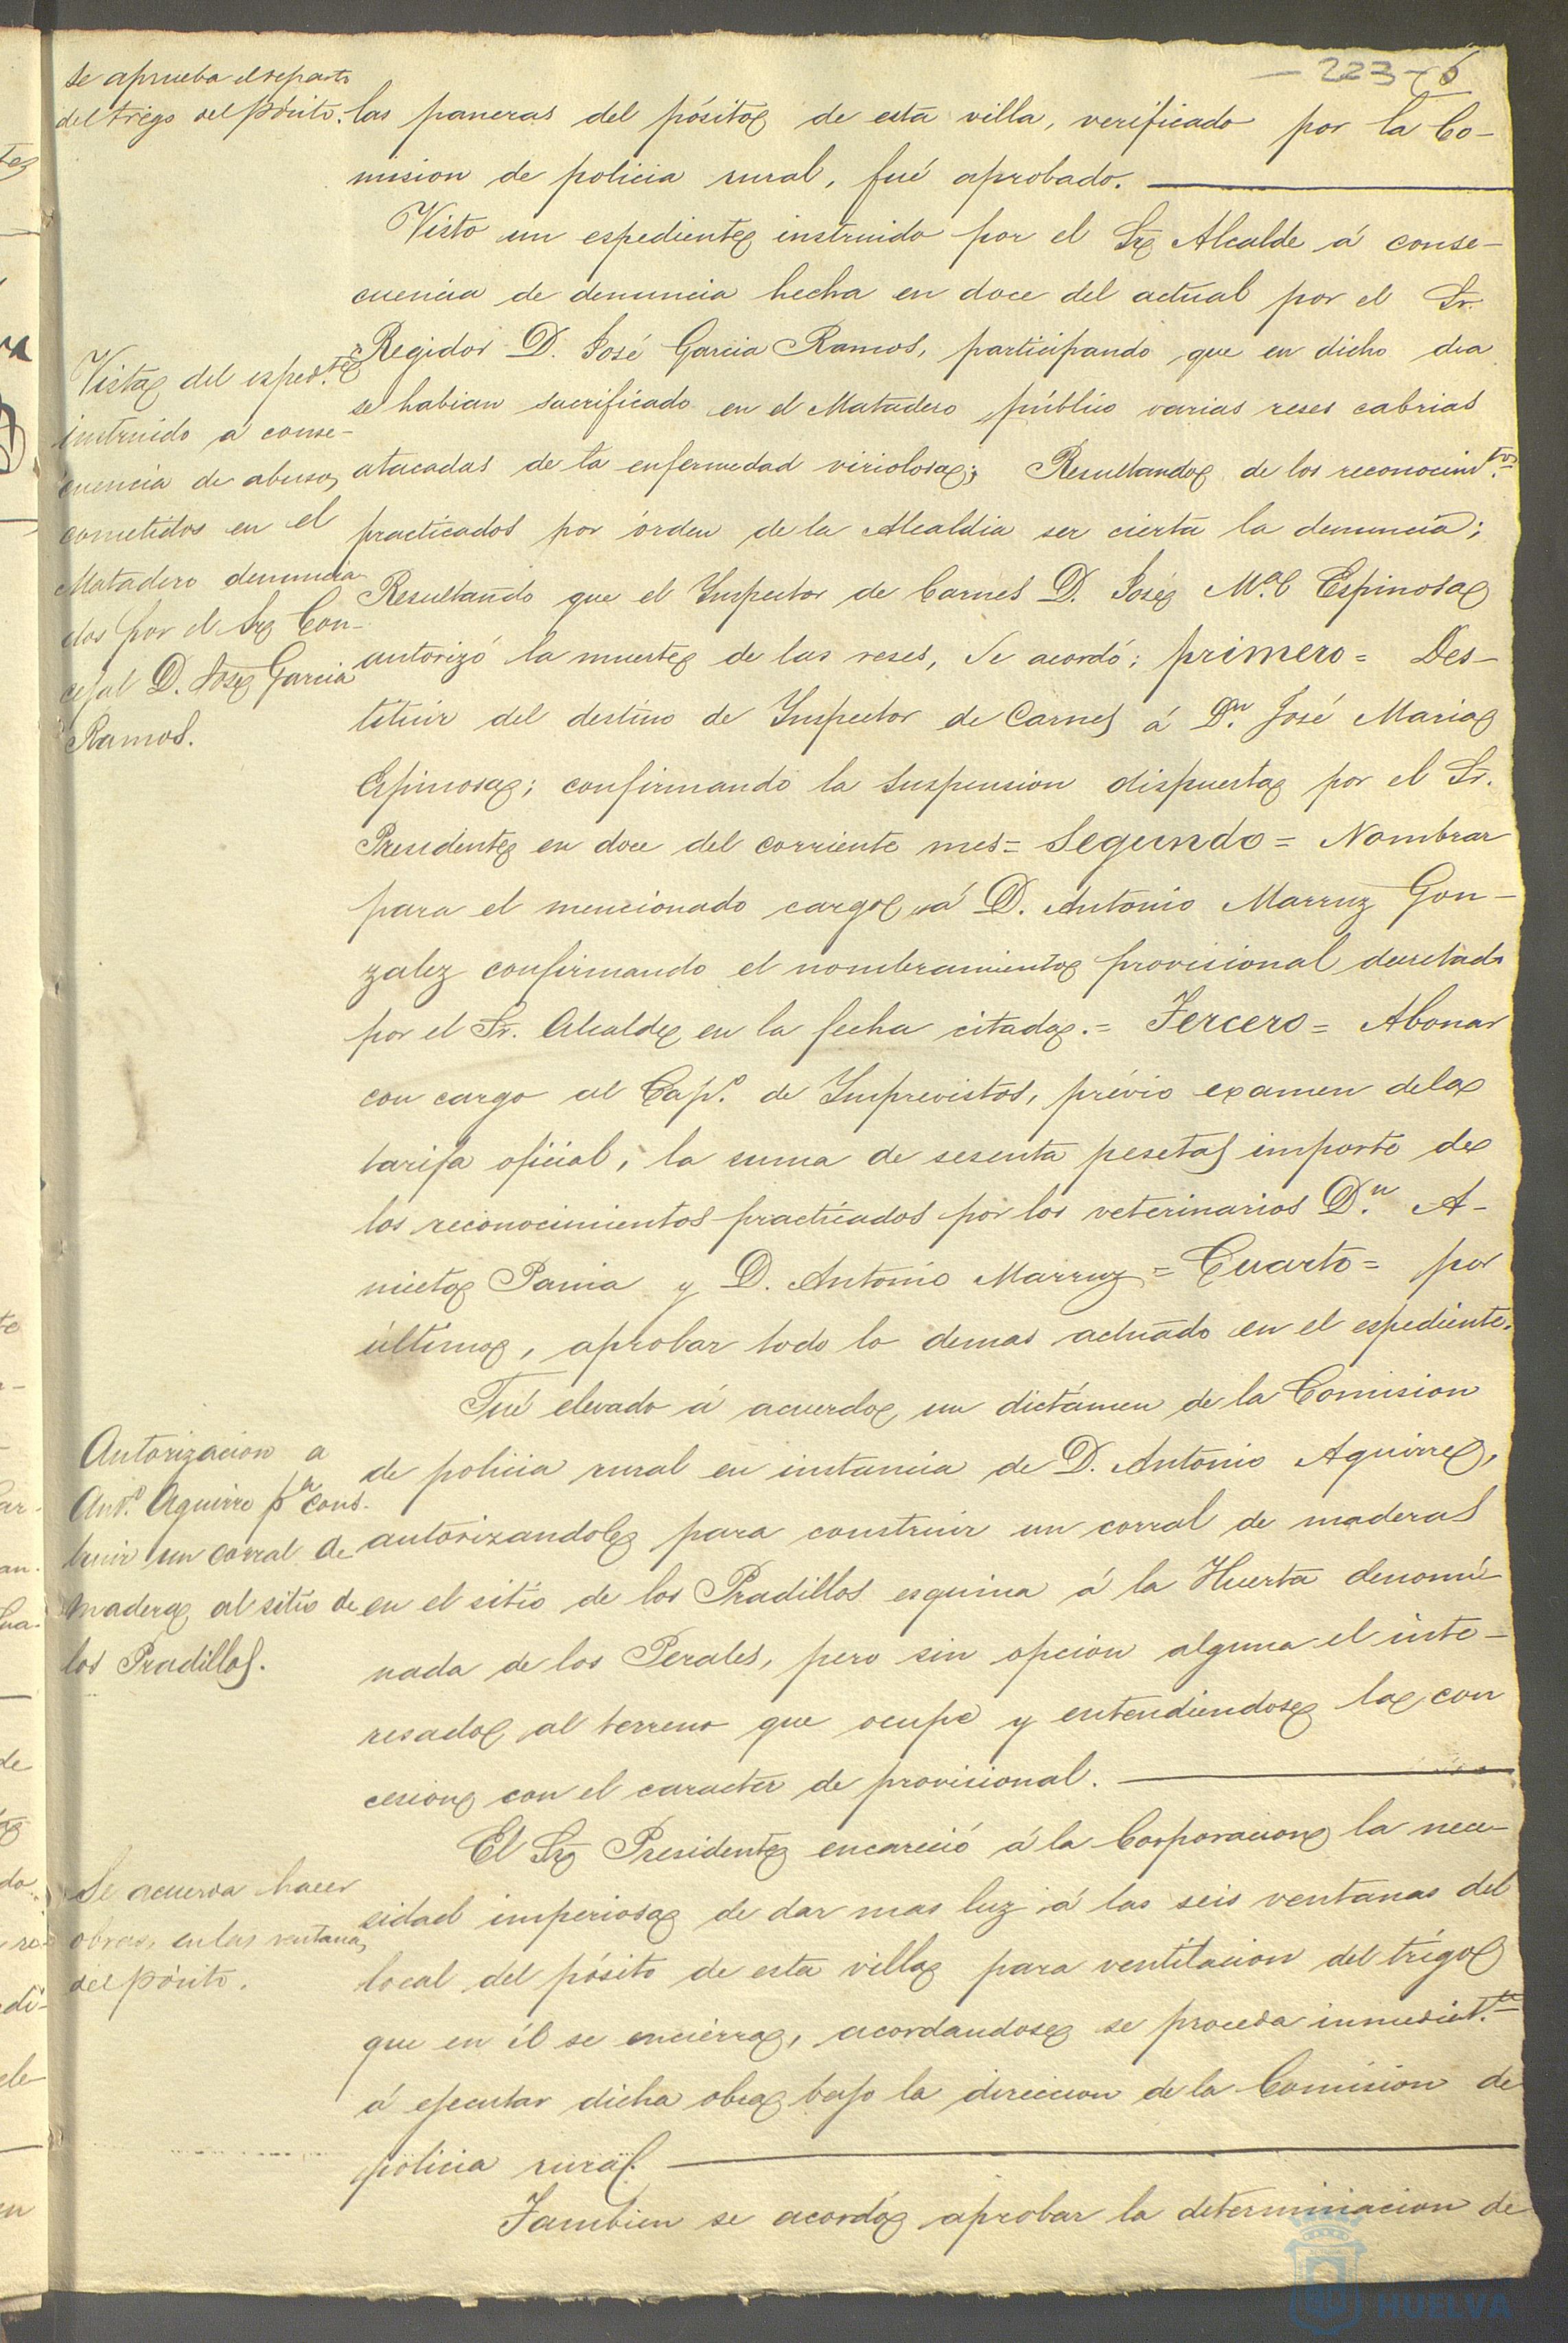 223-6
Se aprueba el reparto
del trigo del pósito.
las paneras del pósito de esta villa, verificado por la Co-
mision de policia rural, fué aprobado.
Visto un espediente instruido por el Sr Alcalde á conse-
cuencia de denuncia hecha en doce del actual por el Sr.
Regidor D. José Garcia Ramos, participando que en dicho dia
se habian sacrificado en el Matadero público varias reses cabrias
atacadas de la enfermedad viriolosa; Resultando de los reconocimtos.
practicados por órden de la Alcaldia ser cierta la denuncia;
Resultando que el Inspector de Carnes D. José Ma. Espinosa
autorizó la muerte de las reses, Se acordó: primero = Des-
tituir del destino de Inspector de Carnes á Dn. José Maria
Espinosa; confirmando la suspension dispuesta por el Sr.
Presidente en doce del corriente mes = Segundo = Nombrar
para el mencionado cargo á D. Antonio Marruz Gon-
zalez confirmando el nombramiento provisional decretado
por el Sr. Alcalde en la fecha citada. = Tercero = Abonar
con cargo al Capo. de Imprevistos, prévio examen de la
tarifa oficial, la suma de sesenta pesetas importe de
los reconocimientos practicados por los veterinarios Dn. A-
niceto Pania y D. Antonio Marruz = Cuarto = por
último, aprobar todo lo demas actuado en el espediente.
Vista del espedte.
instruido á conse-
cuencia de abusos
cometidos en el
Matadero denuncia-
dos por el Sr Con-
cejal D. José Garcia
Ramos.
Fué elevado á acuerdo un dictámen de la Comision
de policia rural en instancia de D. Antonio Aguirre,
autorizandole para construir un corral de maderas
en el sitio de los Pradillos esquina á la Huerta denomi-
nada de los Perales, pero sin opcion alguna el inte-
resado al terreno que ocupe y entendiendose la con
cesion con el caracter de provisional.
Autorizacion a
Anto. Aguirre pa. cons-
truir un corral de
madera al sitio de
los Pradillos.
El Sr Presidente encareció á la Corporacion la nece-
sidad imperiosa de dar mas luz á las seis ventanas del
local del pósito de esta villa para ventilacion del trigo
que en él se encierra, acordandose se proceda inmediatte.
á ejecutar dicha obra bajo la direccion de la Comision de
policia rural.
Se acuerda hacer
obras en las ventanas
del pósito.
Tambien se acordó aprobar la determinacion de
HUELVA